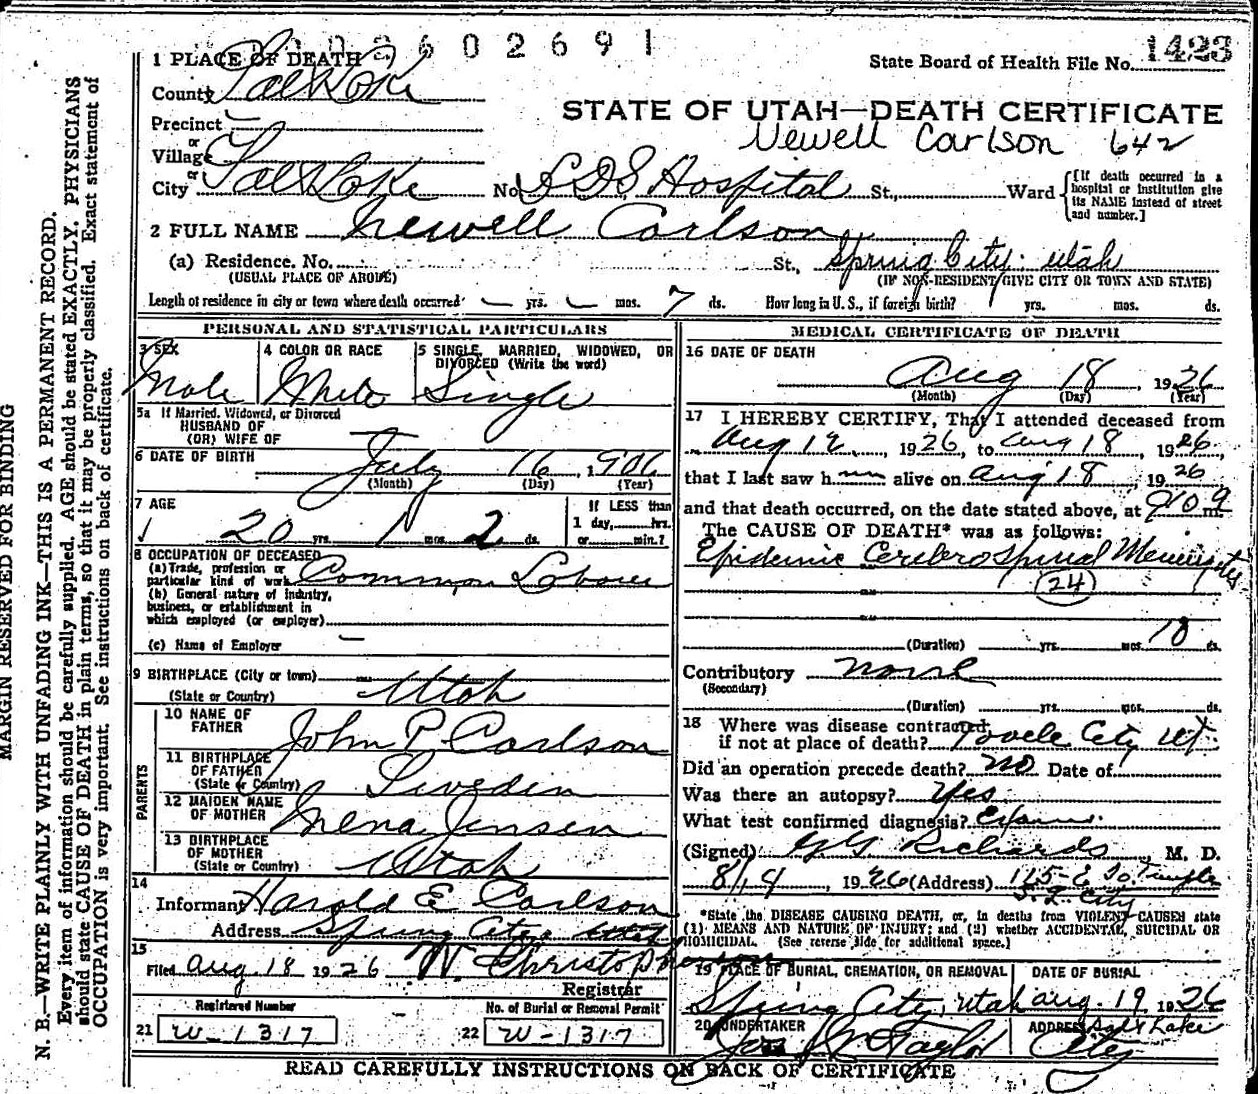 2602691
1 PLACE OF DEATH
State Board of Health File No. 1423
County Salt Lake
STATE OF UTAH—DEATH CERTIFICATE
Precinct
Newell Carlson 642
or
Village
or
City Salt Lake No. LDS Hospital St., Ward
[If death occurred in a hospital or institution give its NAME instead of street and number.]
2 FULL NAME Newell Carlson
(a) Residence. No. St., Spring City. Utah
(USUAL PLACE OF ABODE) (IF NON-RESIDENT GIVE CITY OR TOWN AND STATE)
Length of residence in city or town where death occurred — yrs. — mos. 7 ds. How long in U. S., if foreign birth? yrs. mos. ds.
PERSONAL AND STATISTICAL PARTICULARS
3 SEX 4 COLOR OR RACE 5 SINGLE, MARRIED, WIDOWED, OR
DIVORCED (Write the word)
Male White Single
5a If Married, Widowed, or Divorced
HUSBAND OF
(OR) WIFE OF —
6 DATE OF BIRTH July 16, 1906
(Month) (Day) (Year)
7 AGE If LESS than
20 yrs. 1 mos. 2 ds. 1 day, hrs.
or min.?
8 OCCUPATION OF DECEASED
(a) Trade, profession or
particular kind of work Common Laborer
(b) General nature of industry,
business, or establishment in
which employed (or employer)
(c) Name of Employer —
9 BIRTHPLACE (City or town)
(State or Country) Utah
PARENTS
10 NAME OF
FATHER John P. Carlson
11 BIRTHPLACE
OF FATHER
(State or Country) Sweden
12 MAIDEN NAME
OF MOTHER Mena Jensen
13 BIRTHPLACE
OF MOTHER
(State or Country) Utah
14
Informant Harold E Carlson
Address Spring City Utah
15
Filed Aug. 18 1926 W Christopherson
Registrar
Registered Number No. of Burial or Removal Permit
21 W-1317 22 W-1317
MEDICAL CERTIFICATE OF DEATH
16 DATE OF DEATH
Aug 18, 1926
(Month) (Day) (Year)
17 I HEREBY CERTIFY, That I attended deceased from
Aug 12, 1926, to Aug 18, 1926,
that I last saw him alive on Aug 18, 1926
and that death occurred, on the date stated above, at m.
The CAUSE OF DEATH* was as follows:
Epidemic Cerebro Spinal Meningitis
(24)
(Duration) yrs. mos. ds.
Contributory None
(Secondary)
(Duration) yrs. mos. ds.
18 Where was disease contracted
if not at place of death? Tooele City Ut.
Did an operation precede death? No Date of
Was there an autopsy? Yes
What test confirmed diagnosis?
(Signed) G G Richards, M. D.
8/19, 1926 (Address) 115 E So. Temple
S. L. City
*State the DISEASE CAUSING DEATH, or, in deaths from VIOLENT CAUSES state
(1) MEANS AND NATURE OF INJURY; and (2) whether ACCIDENTAL, SUICIDAL OR
HOMICIDAL. (See reverse side for additional space.)
19 PLACE OF BURIAL, CREMATION, OR REMOVAL DATE OF BURIAL
Spring City, Utah Aug. 19 1926
20 UNDERTAKER ADDRESS Salt Lake
Jos Wm Taylor City
READ CAREFULLY INSTRUCTIONS ON BACK OF CERTIFICATE
MARGIN RESERVED FOR BINDING
N. B.—WRITE PLAINLY WITH UNFADING INK—THIS IS A PERMANENT RECORD.
Every item of information should be carefully supplied. AGE should be stated EXACTLY. PHYSICIANS
should state CAUSE OF DEATH in plain terms, so that it may be properly classified. Exact statement of
OCCUPATION is very important. See instructions on back of certificate.